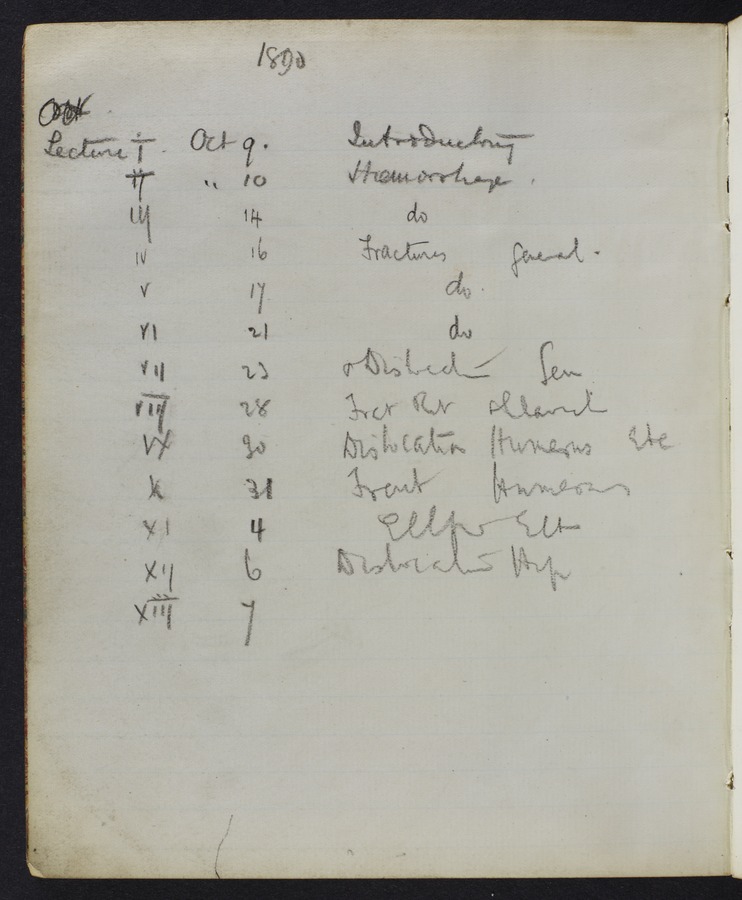 1890
Lecture I. Oct 9. Introductory
II " 10 Haemorrhage.
III 14 do
IV 16 Fractures General.
V 17 do.
VI 21 do
VII 23 Gen
VIII 28 Fract
IX 30 Dislocation Humerus Etc
X 31 Fract Humerus
XI 4
XII 6 Dislocation Hip
XIII 7